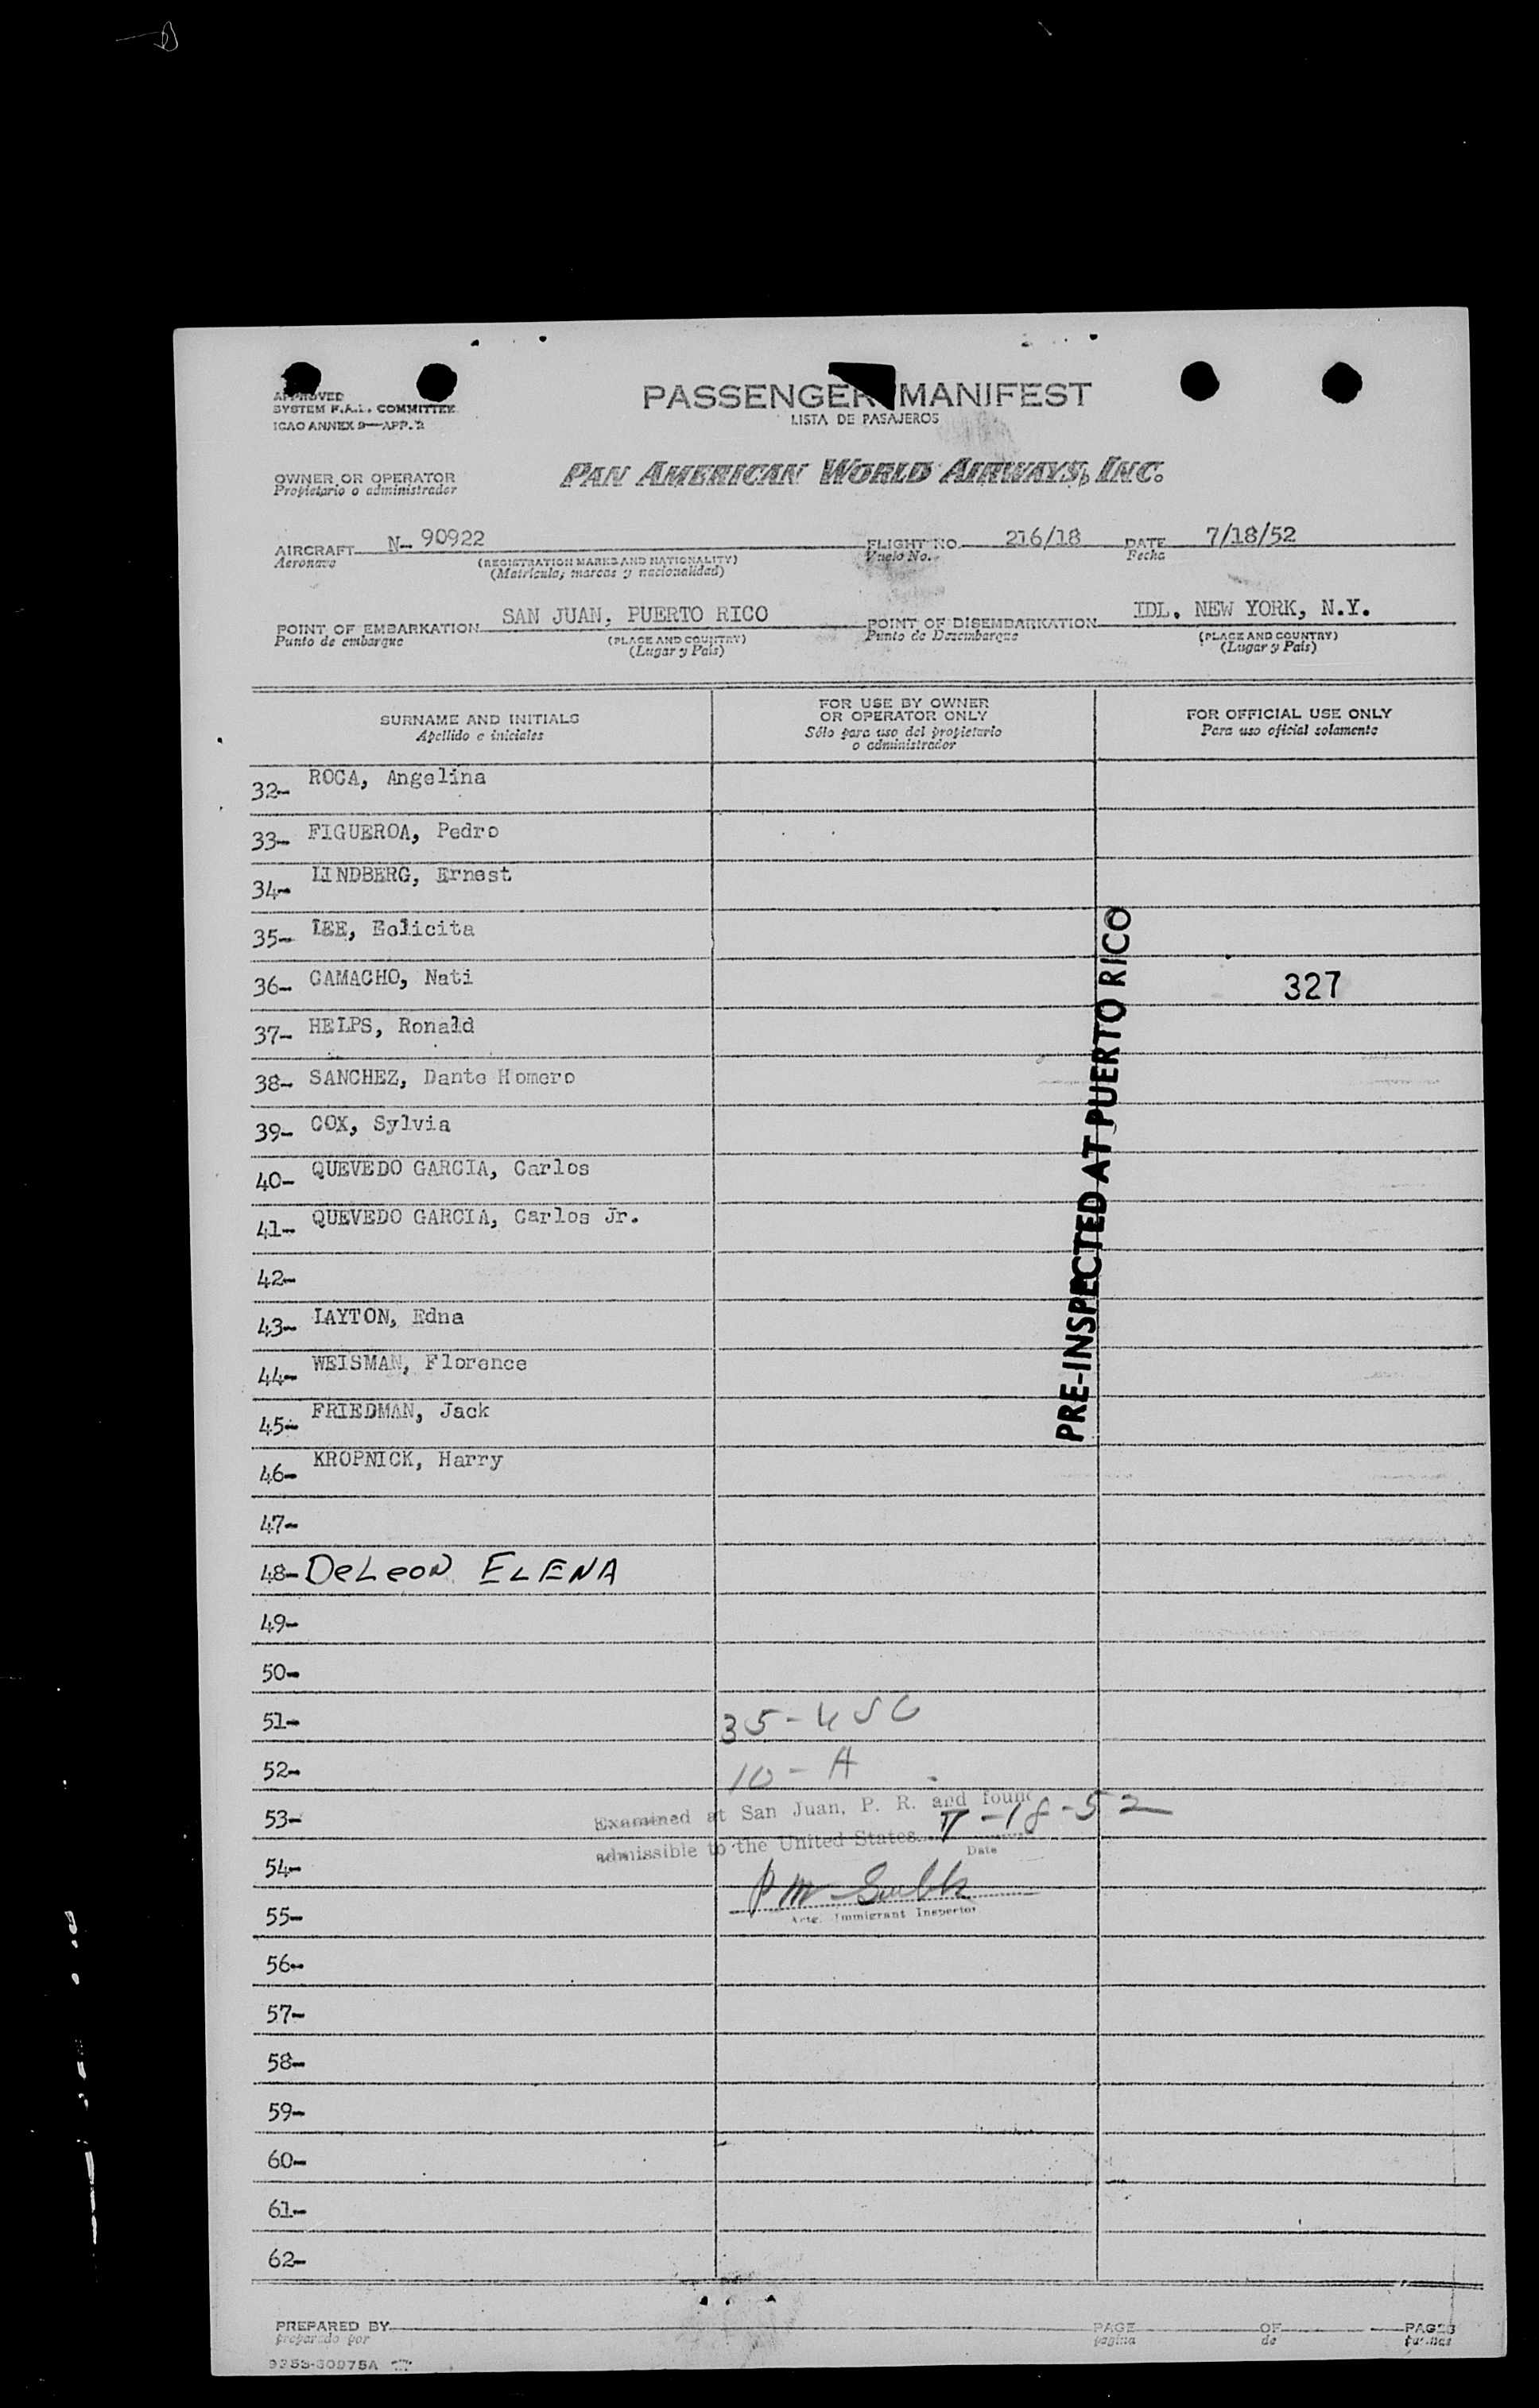 APPROVED
SYSTEM F.A.L. COMMITTEE
ICAO ANNEX 9—APP. 2
PASSENGER MANIFEST
LISTA DE PASAJEROS
OWNER OR OPERATOR
Propietario o administrador
PAN AMERICAN WORLD AIRWAYS, INC.
AIRCRAFT N- 90922 FLIGHT NO. 216/18 DATE 7/18/52
Aeronave (REGISTRATION MARKS AND NATIONALITY) Vuelo No. Fecha
(Matrícula, marcas y nacionalidad)
POINT OF EMBARKATION SAN JUAN, PUERTO RICO POINT OF DISEMBARKATION IDL. NEW YORK, N.Y.
Punto de embarque (PLACE AND COUNTRY) Punto de Desembarque (PLACE AND COUNTRY)
(Lugar y País) (Lugar y País)
SURNAME AND INITIALS
Apellido e iniciales
FOR USE BY OWNER
OR OPERATOR ONLY
Sólo para uso del propietario
o administrador
FOR OFFICIAL USE ONLY
Para uso oficial solamente
32- ROCA, Angelina
33- FIGUEROA, Pedro
34- LINDBERG, Ernest
35- LEE, Eolicita
36- CAMACHO, Nati 327
37- HELPS, Ronald
38- SANCHEZ, Dante Homero
39- COX, Sylvia
40- QUEVEDO GARCIA, Carlos
41- QUEVEDO GARCIA, Carlos Jr.
42-
43- LAYTON, Edna
44- WEISMAN, Florence
45- FRIEDMAN, Jack
46- KROPNICK, Harry
47-
48- DeLeoN ELENA
49-
50-
51- 35-USC
52- 10-A
53- Examined at San Juan, P. R. and found
admissible to the United States 7-18-52
54- Date
55- Actg. Immigrant Inspector
56-
57-
58-
59-
60-
61-
62-
PRE-INSPECTED AT PUERTO RICO
PREPARED BY PAGE OF PAGES
preparado por pagina de